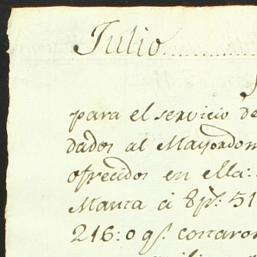 Julio
para el servicio de
dados al Mayordom
ofrecidos en ella:
Manta á 8ps. 51
216: o qs. costaron